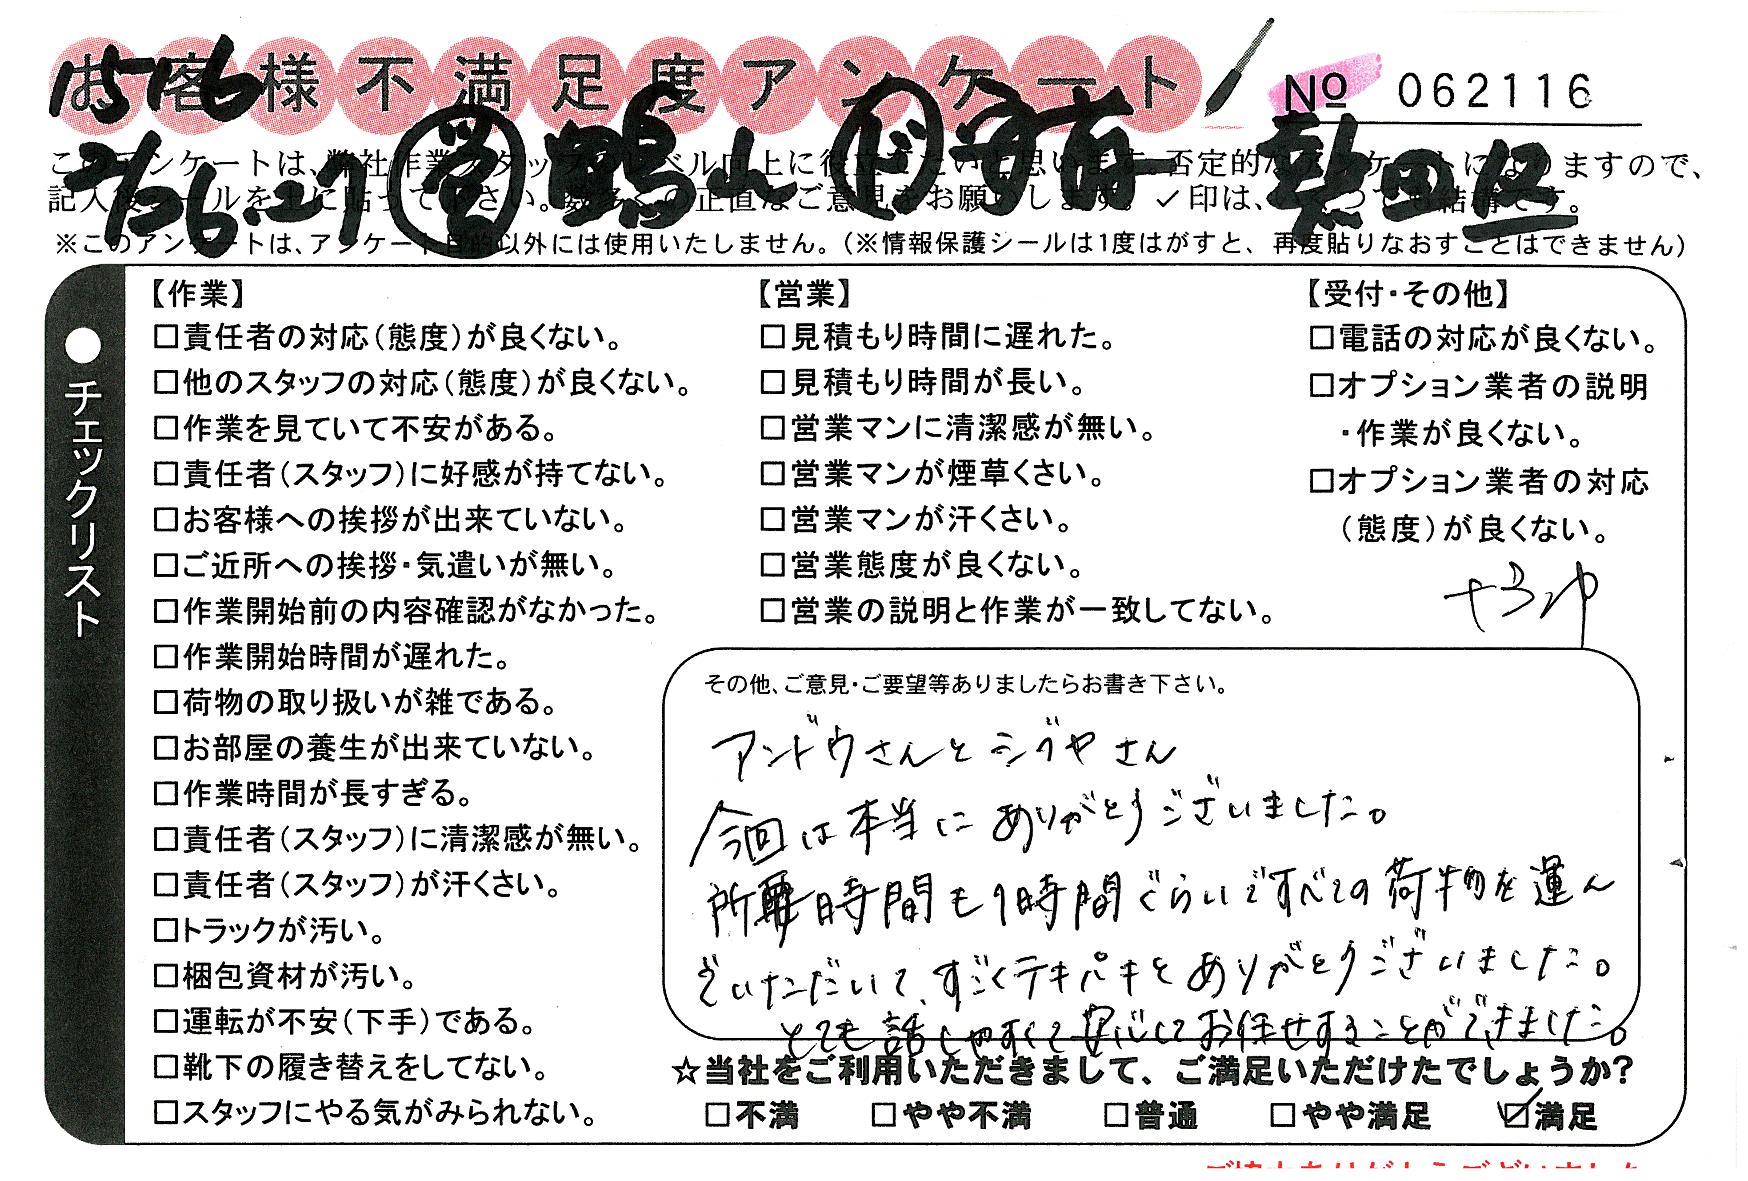 お客様不満足度アンケート
No 062116
1576
2/26.27 営 鴨 熱田区
このアンケートは、弊社作業スタッフのレベル向上に役立てたいと思います。否定的なアンケートになりますので、
記入後シールを上に貼って下さい。数多くの正直なご意見をお願いします。✓印は、いくつでも結構です。
※このアンケートは、アンケート目的以外には使用いたしません。(※情報保護シールは1度はがすと、再度貼りなおすことはできません)
●チェックリスト
【作業】
□責任者の対応(態度)が良くない。
□他のスタッフの対応(態度)が良くない。
□作業を見ていて不安がある。
□責任者(スタッフ)に好感が持てない。
□お客様への挨拶が出来ていない。
□ご近所への挨拶・気遣いが無い。
□作業開始前の内容確認がなかった。
□作業開始時間が遅れた。
□荷物の取り扱いが雑である。
□お部屋の養生が出来ていない。
□作業時間が長すぎる。
□責任者(スタッフ)に清潔感が無い。
□責任者(スタッフ)が汗くさい。
□トラックが汚い。
□梱包資材が汚い。
□運転が不安(下手)である。
□靴下の履き替えをしてない。
□スタッフにやる気がみられない。
【営業】
□見積もり時間に遅れた。
□見積もり時間が長い。
□営業マンに清潔感が無い。
□営業マンが煙草くさい。
□営業マンが汗くさい。
□営業態度が良くない。
□営業の説明と作業が一致してない。
【受付・その他】
□電話の対応が良くない。
□オプション業者の説明
・作業が良くない。
□オプション業者の対応
(態度)が良くない。
その他、ご意見・ご要望等ありましたらお書き下さい。
アンドウさんとシブヤさん
今回は本当にありがとうございました。
所要時間も1時間ぐらいですべての荷物を運ん
でいただいて、すごくテキパキとありがとうございました。
とても話しやすくて安心してお任せすることができました。
☆当社をご利用いただきまして、ご満足いただけたでしょうか?
□不満 □やや不満 □普通 □やや満足 ☑満足